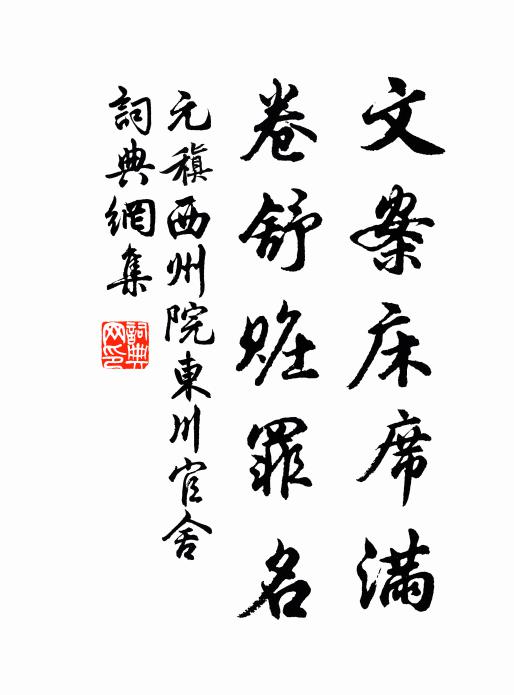 文案床席滿
卷舒贓罪名
元稹西州院東川官舍
詞典網集
詞典網印